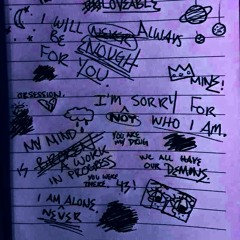 LOVEABLE
I WILL NEVER ALWAYS
BE
FOR ENOUGH
YOU.
MINE!
OBSESSION.
I'M SORRY FOR
NOT WHO I AM.
MY MIND
YOU ARE
MY DRUG
IS A WORK
IN PROGRESS
WE ALL HAVE
OUR DEMONS.
YOU WERE
THERE.
I AM ALONE.
NEVER